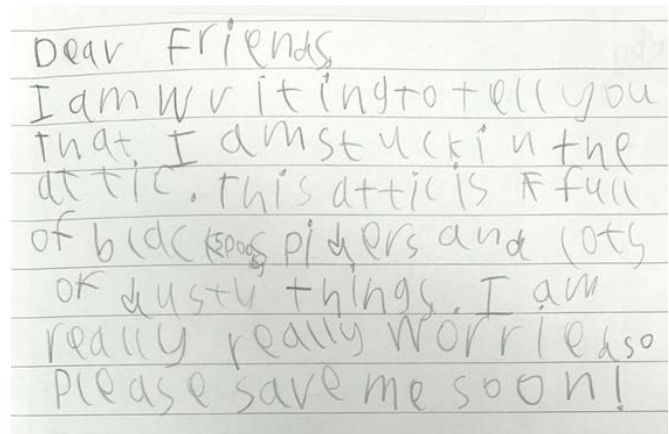 Dear Friends
I am writing to tell you
that I am stuck in the
attic. This attic is full
of black spiders and lots
of dusty things. I am
really really worried so
please save me soon!